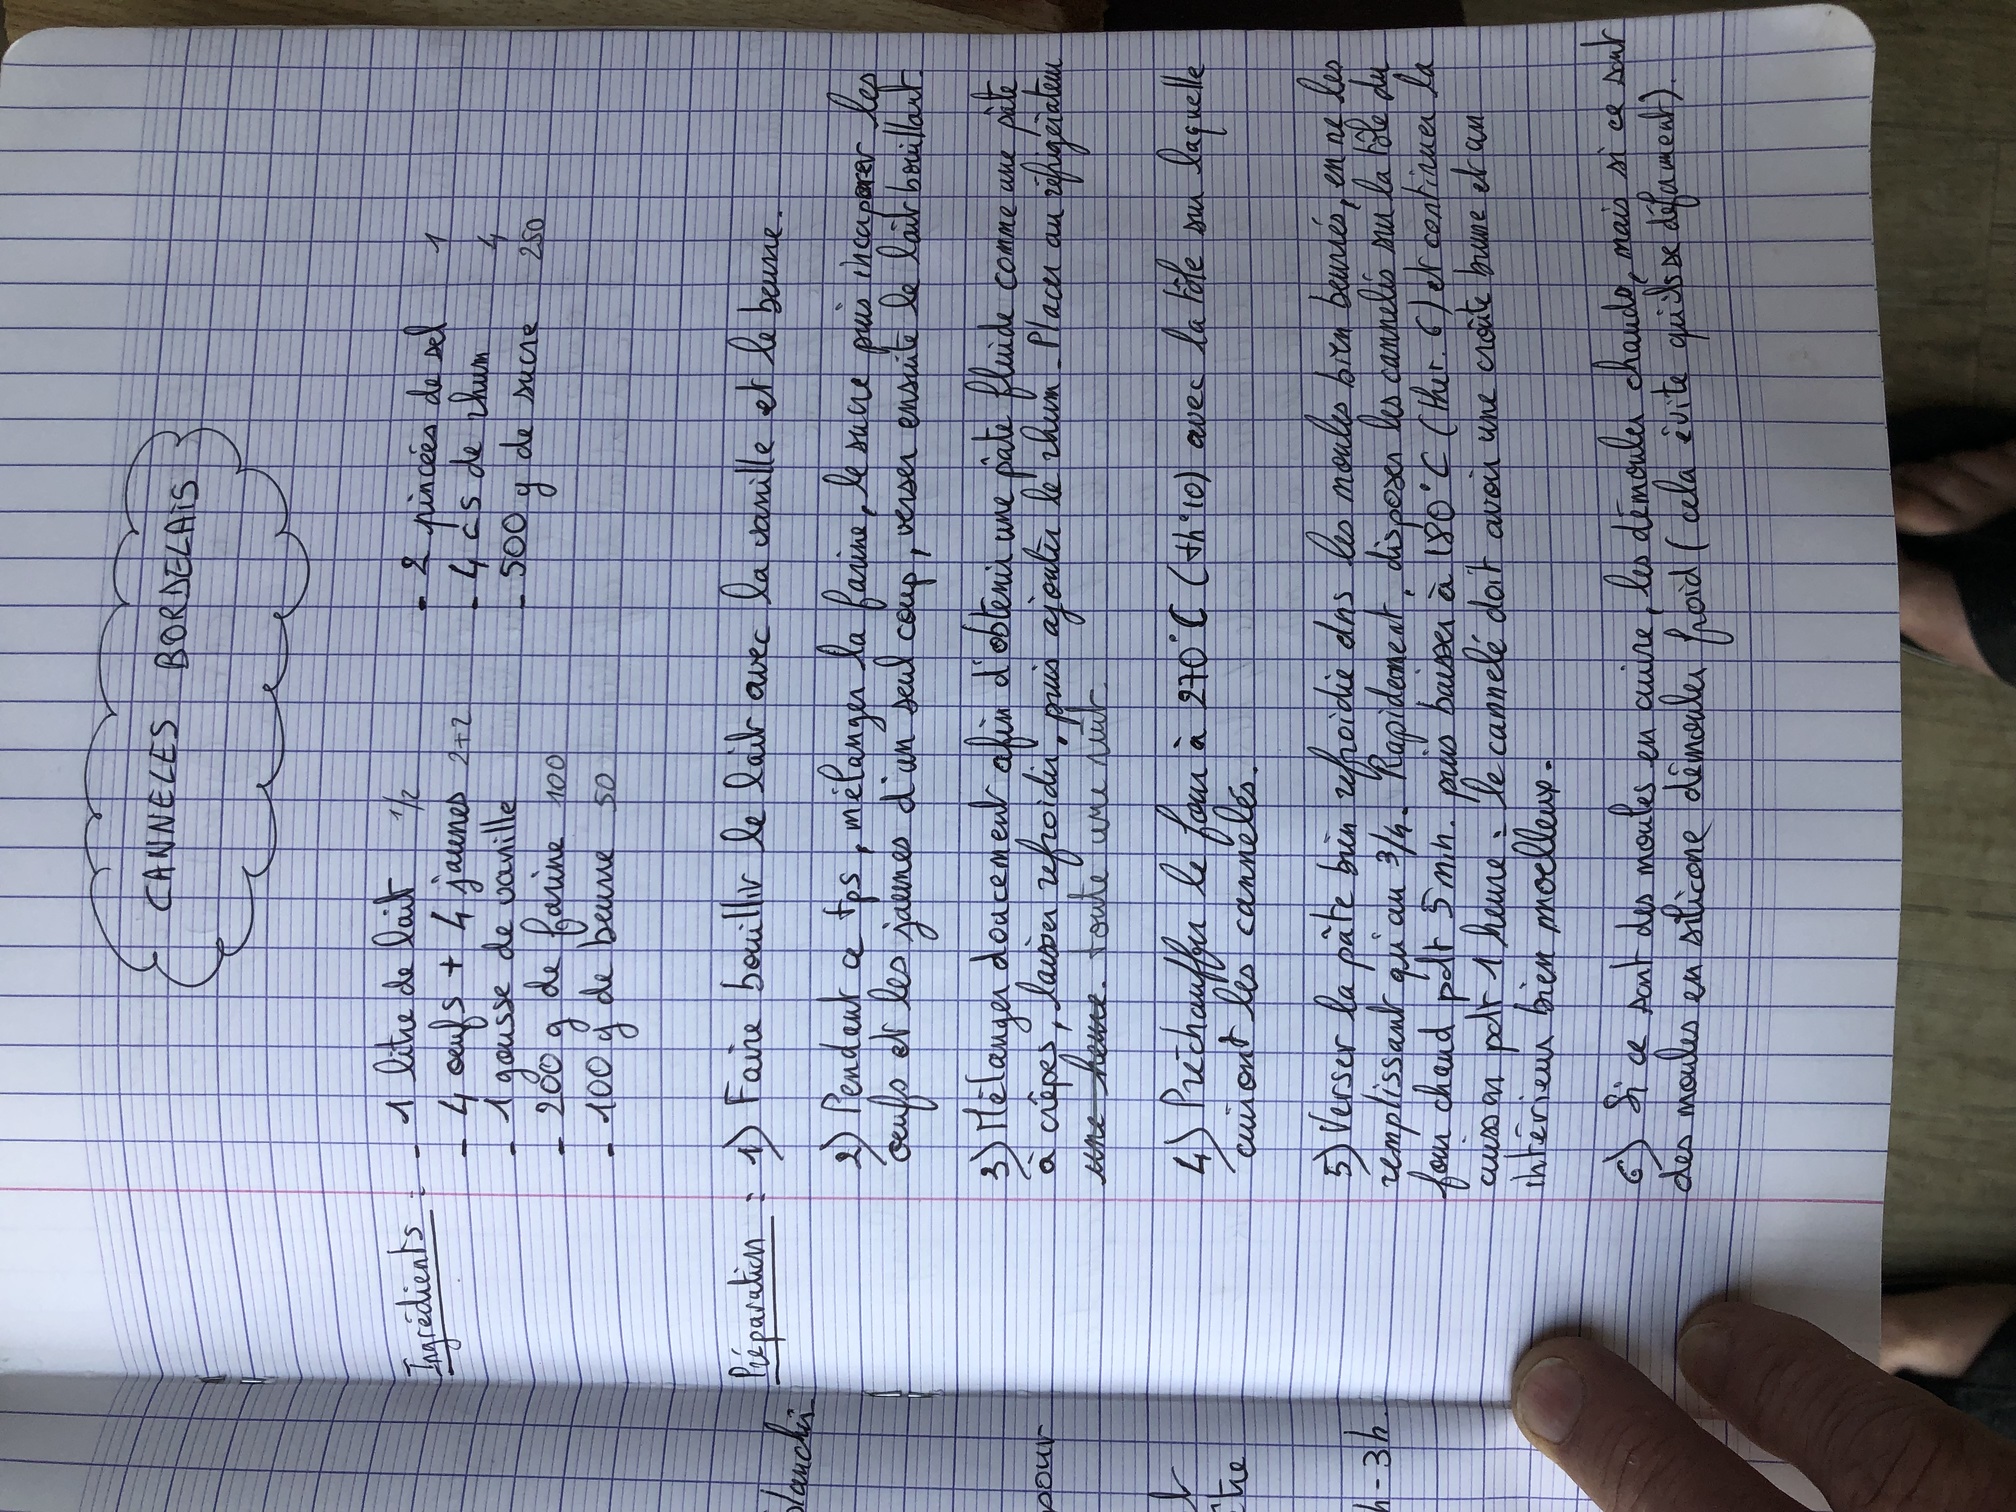 CANNELES BORDELAIS
Ingrédients : - 1 litre de lait 1/2
- 4 oeufs + 4 jaunes 2+2
- 1 gousse de vanille
- 200 g de farine 100
- 100 g de beurre 50
- 2 pincées de sel 1
- 4 cs de rhum 4
- 500 g de sucre 250
Préparation : 1) Faire bouillir le lait avec la vanille et le beurre.
2) Pendant ce tps, mélanger la farine, le sucre puis incorporer les
oeufs et les jaunes d'un seul coup, verser ensuite le lait bouillant.
3) Mélanger doucement afin d'obtenir une pâte fluide comme une pâte
à crêpes, laisser refroidir, puis ajouter le rhum. Placer au réfrigérateur
une heure. toute une nuit.
4) Préchauffer le four à 270°C (th°10) avec la tôle sur laquelle
cuiront les cannelés.
5) Verser la pâte bien refroidie dns les moules bien beurrés, en ne les
remplissant qu'au 3/4. Rapidement, disposer les cannelés sur la tôle du
four chaud pdt 5 min. puis baisser à 180°C (ther. 6) et continuer la
cuisson pdt 1 heure : le cannelé doit avoir une croûte brune et un
intérieur bien moelleux.
6) Si ce sont des moules en cuivre, les démouler chauds, mais si ce sont
des moules en silicone démouler froid (cela évite qu'ils se déforment).
blanchir
pour
h - 3h.